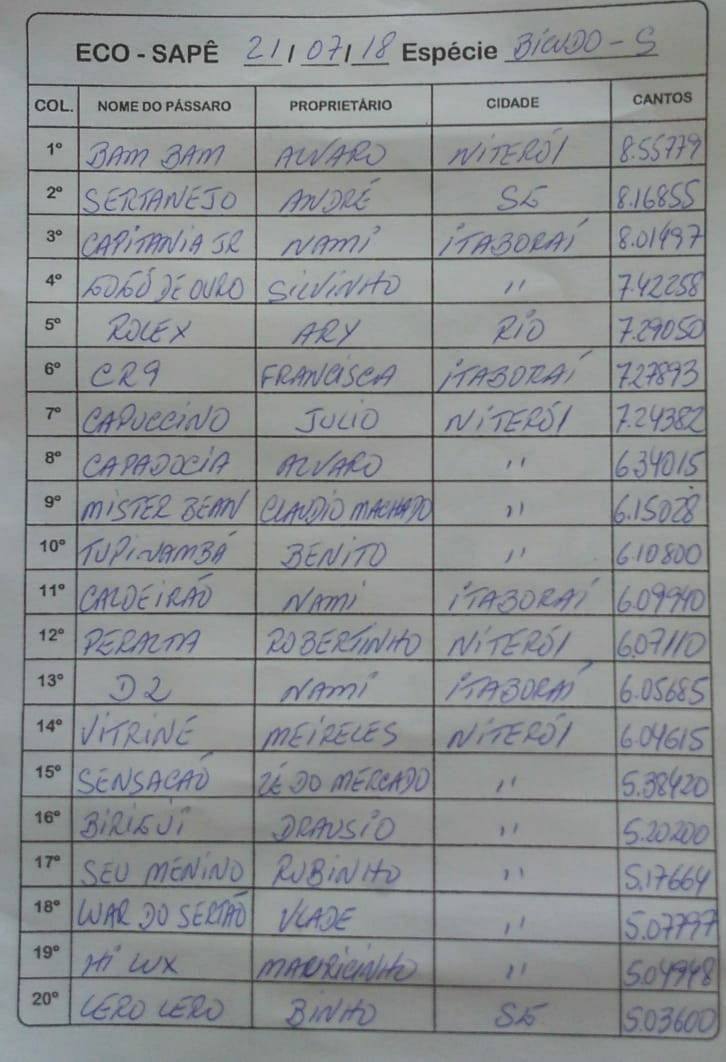 ECO - SAPÊ 21/07/18 Espécie BICUDO - S
COL. NOME DO PÁSSARO PROPRIETÁRIO CIDADE CANTOS
1º BAM BAM ALVARO NITERÓI 8.55779
2º SERTANEJO ANDRÉ SG 8.16855
3º CAPITANIA JR NAMI ITABORAÍ 8.01497
4º DE OURO SILVINHO " 7.42258
5º ROLEX ARY RIO 7.29050
6º CR9 FRANCISCA ITABORAÍ 7.27893
7º CAPUCCINO JULIO NITERÓI 7.24382
8º CAPADOCIA ALVARO " 6.34015
9º MISTER BEAN CLAUDIO MACHADO " 6.15028
10º TUPINAMBÁ BENITO " 6.10800
11º CALDEIRÃO NAMI ITABORAÍ 6.09940
12º PERALTA ROBERTINHO NITERÓI 6.07110
13º D2 NAMI ITABORAÍ 6.05685
14º VITRINE MEIRELES NITERÓI 6.04615
15º SENSACAÕ ZÉ DO MERCADO " 5.38420
16º BIRIGUI DRAUSIO " 5.20200
17º SEU MENINO RUBINHO " 5.17664
18º LUAR DO SERTÃO VLADE " 5.07797
19º HI LUX MAURICINHO " 5.04948
20º LERO LERO BINHO SG 5.03600